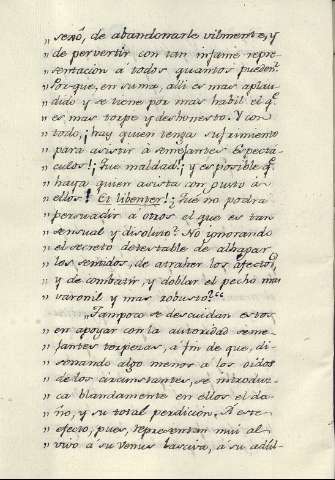 „ señó, de abandonarle vilmente, y
„ de pervertir con tan infame repre-
„ sentacion á todos quantos pueden?
„ Porque, en suma, alli es mas aplau-
„ dido y se tiene por mas habil el q.e
„ es mas torpe y deshonesto. Y con
„ todo, ¡hay quien tenga sufrimiento
„ para asistir á semejantes Espectá-
„ culos! ¡Que maldad! ¡y es posible q.e
„ haya quien asista con gusto á
„ ellos! Et libenter! ¿Qué no podrá
„ persuadir á otros el que es tan
„ sensual y disoluto? No ignorando
„ el secreto detestable de alhagar
„ los sentidos, de atraher los afectos,
„ y de combatir, y doblar el pecho mas
„ varonil y mas robusto?“
„ Tampoco se descuidan estos
„ en apoyar con la autoridad seme-
„ jantes torpezas, á fin de que, di-
„ sonando algo menos á los oidos
„ de los circunstantes, se introduz-
„ ca blandamente en ellos el da-
„ ño, y su total perdicion. A este
„ efecto, pues, representan mui al
„ vivo á su Venus lasciva, á su adúl-